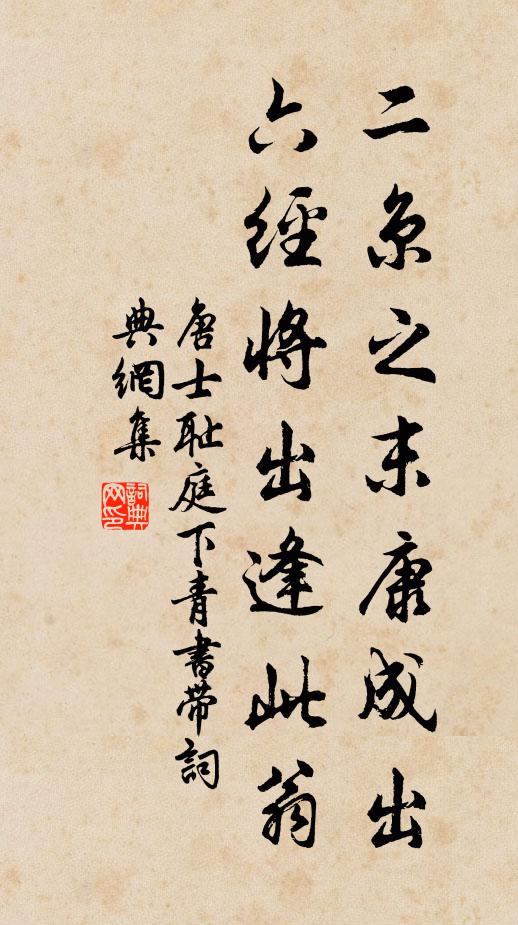 二京之末康成出
六經將出逢此翁
唐士耻庭下青書帶詞
典網集
詞典网印